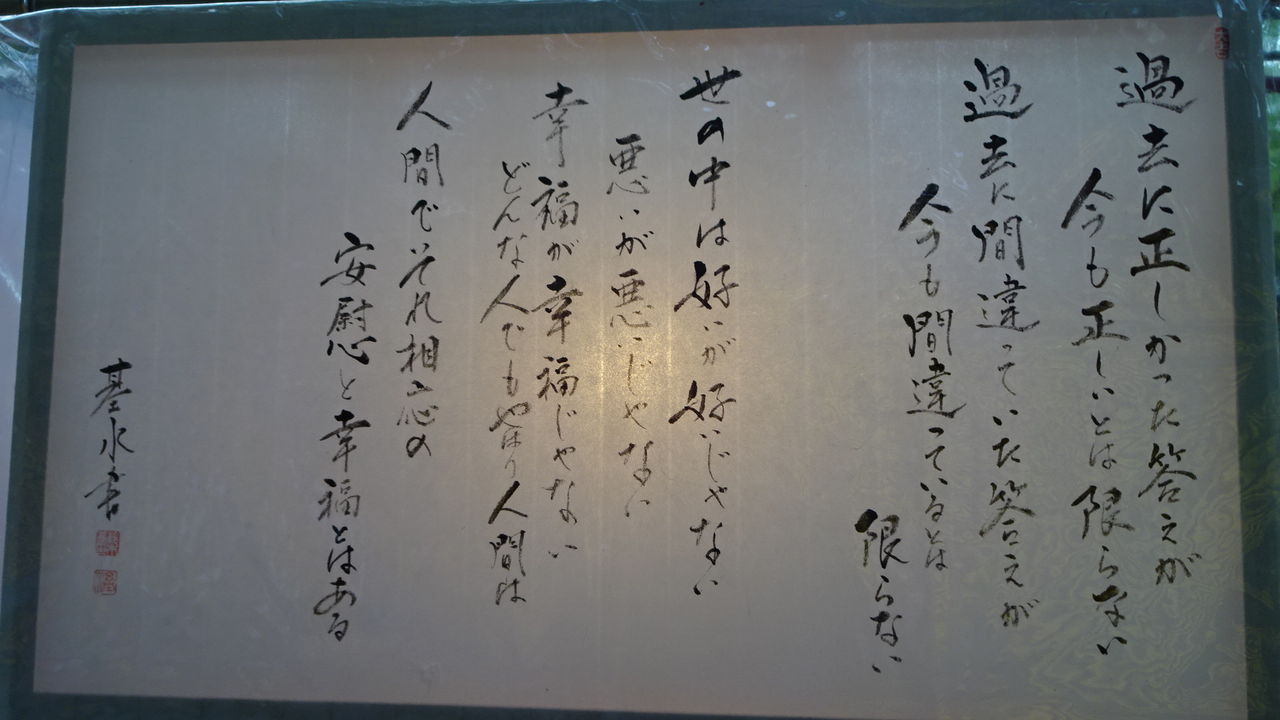 過去に正しかった答えが
今も正しいとは限らない
過去に間違っていた答えが
今も間違っているとは
限らない
世の中は好いが好いじゃない
悪いが悪いじゃない
幸福が幸福じゃない
どんな人でもやはり人間は
人間でそれ相応の
安慰心と幸福とはある
基水書